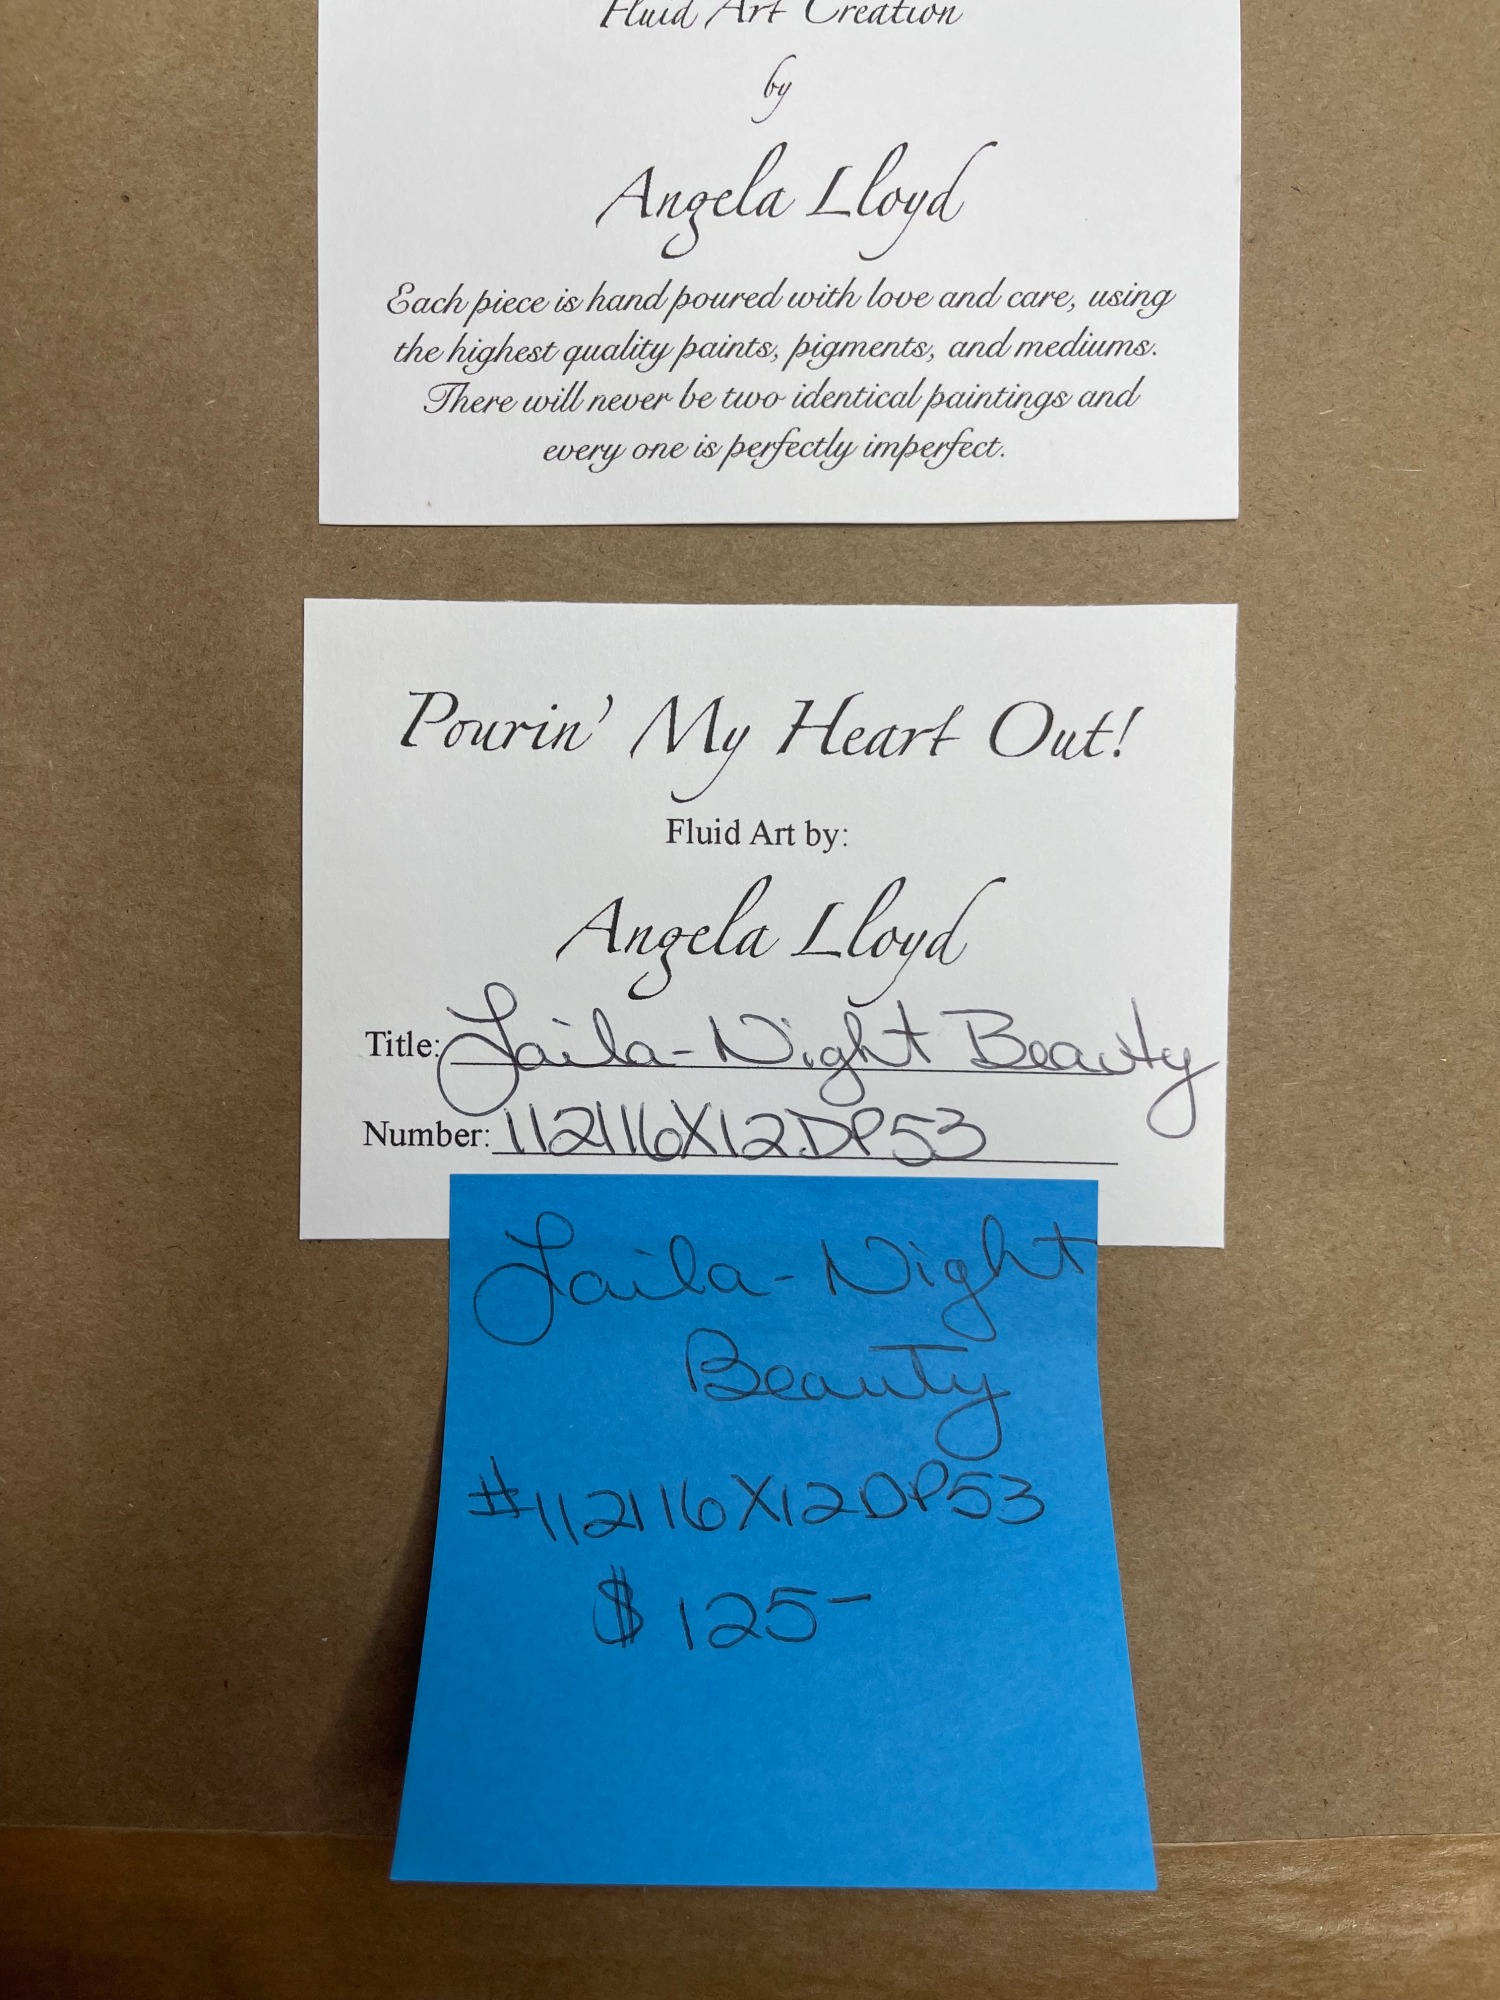 Fluid Art Creation
by
Angela Lloyd
Each piece is hand poured with love and care, using
the highest quality paints, pigments, and mediums.
There will never be two identical paintings and
every one is perfectly imperfect.
Pourin' My Heart Out!
Fluid Art by:
Angela Lloyd
Title: Laila-Night Beauty
Number: 112116X12DP53
Laila-Night
Beauty
#112116X12DP53
$125-